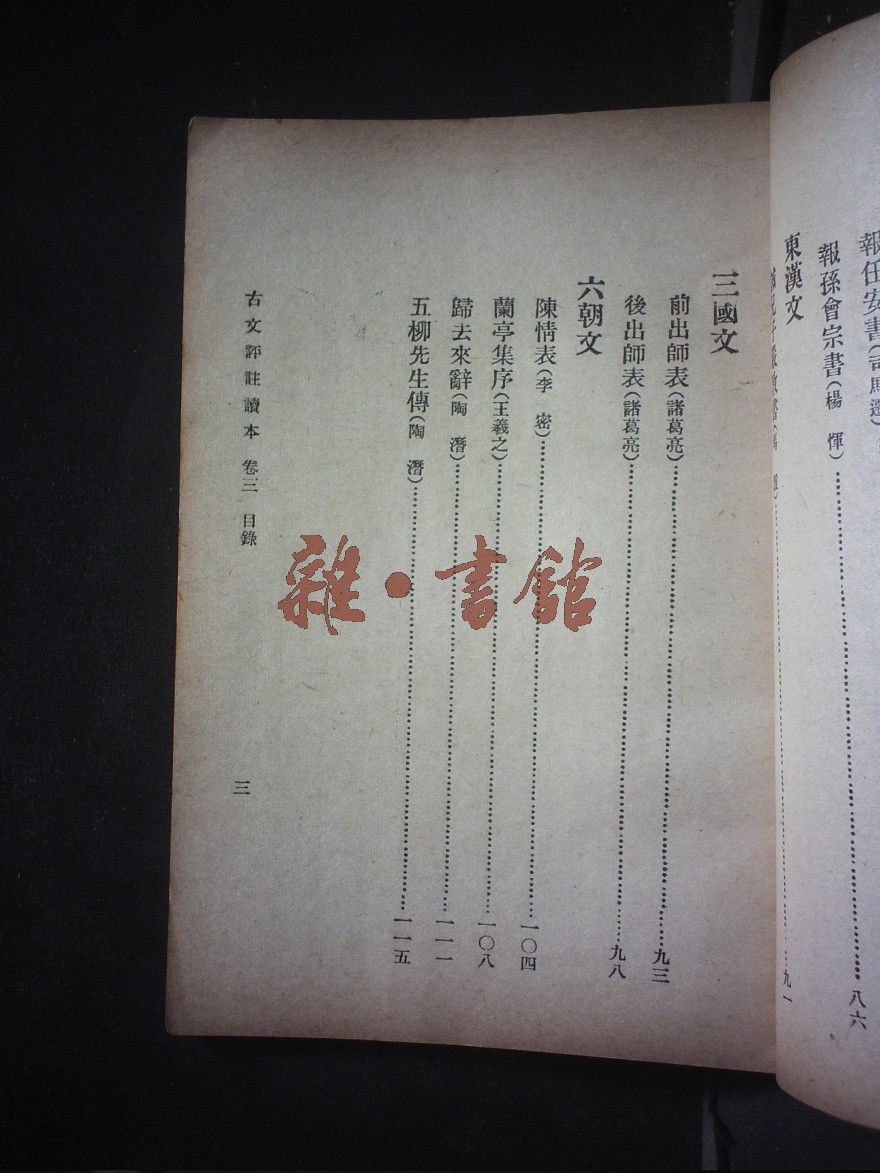 報任安書(司馬遷)
八六
報孫會宗書(楊 惲)
東漢文
九一
三國文
前出師表(諸葛亮)……九三
後出師表(諸葛亮)……九八
六朝文
陳情表(李 密)……一〇四
蘭亭集序(王羲之)……一〇八
歸去來辭(陶 潛)……一一一
五柳先生傳(陶 潛)……一一五
古文評註讀本 卷三 目錄
三
雜·書館